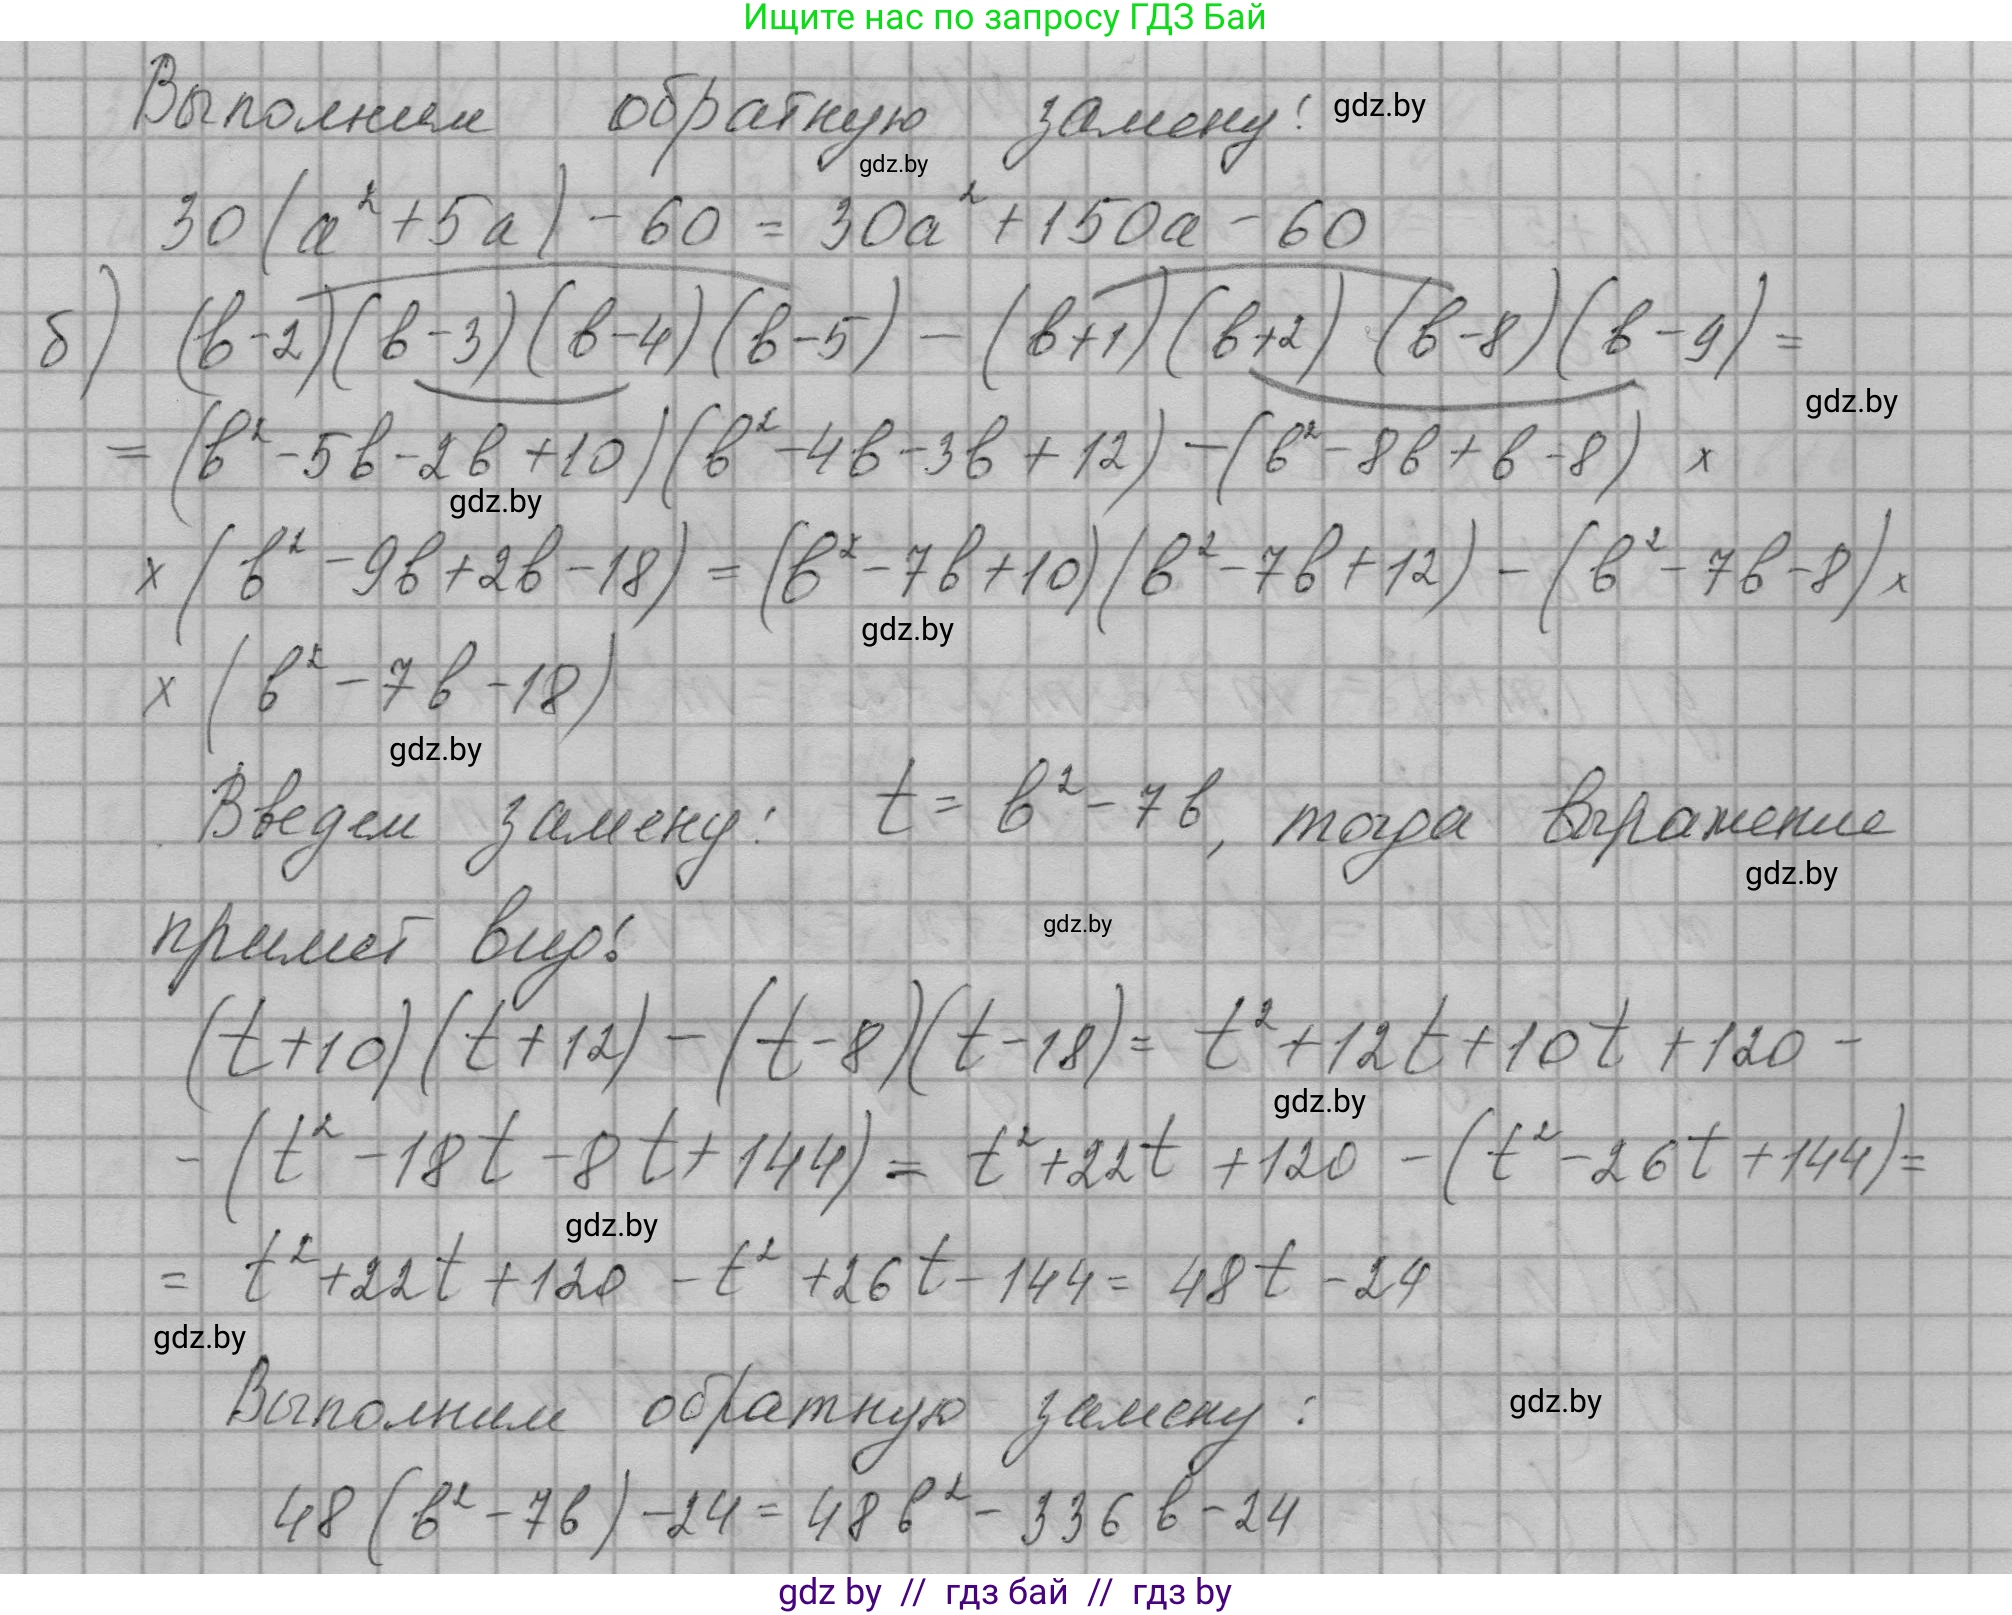 Ищите нас по запросу ГДЗ Бай
Выполним обратную замену: gdz.by
gdz.by
30(a² + 5a) - 60 = 30a² + 150a - 60
б) (в-2)(в-3)(в-4)(в-5) - (в+1)(в+2)·(в-8)(в-9) =
gdz.by
= (в² - 5в - 2в + 10)(в² - 4в - 3в + 12) - (в² - 8в + в - 8) ×
gdz.by
× (в² - 9в + 2в - 18) = (в² - 7в + 10)(в² - 7в + 12) - (в² - 7в - 8) ×
gdz.by
× (в² - 7в - 18)
gdz.by
Введем замену: t = в² - 7в, тогда выражение
gdz.by
примет вид:
gdz.by
(t+10)(t+12) - (t-8)(t-18) = t² + 12t + 10t + 120 -
gdz.by
- (t² - 18t - 8t + 144) = t² + 22t + 120 - (t² - 26t + 144) =
gdz.by
= t² + 22t + 120 - t² + 26t - 144 = 48t - 24
gdz.by
Выполним обратную замену: gdz.by
48(в² - 7в) - 24 = 48в² - 336в - 24
gdz by // гдз бай // гдз by